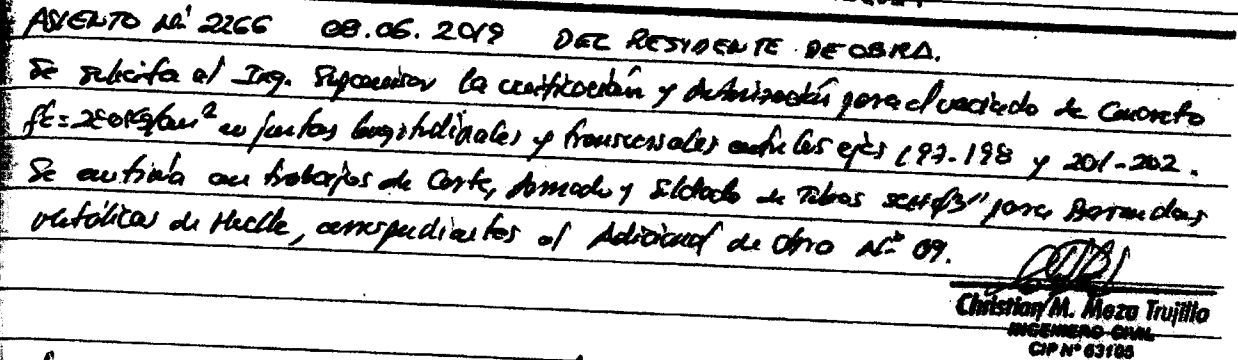 ASIENTO Nº 2266 08.06.2019 DEL RESIDENTE DE OBRA.
Se solicita al Ing. Supervisor la verificación y autorización para el vaciado de Concreto
f'c=280Kg/cm² en juntas longitudinales y transversales entre los ejes 197-198 y 201-202.
Se continúa con trabajos de Corte, Armado y Soldado de Tubos ø3" para Barandas
Metálicas de Muelle, correspondientes al Adicional de Obra Nº 09.
Christian M. Meza Trujillo
INGENIERO CIVIL
CIP Nº 63105